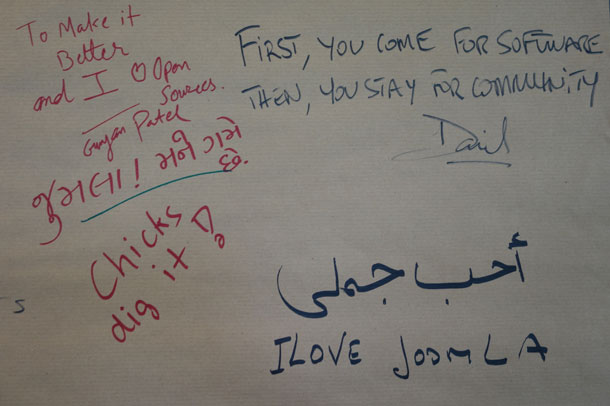 To Make it
Better
and I ♡ Open
Sources.
Gunjan Patel
જુમલા! મને ગમે
છે.
Chicks
dig it!
FIRST, YOU COME FOR SOFTWARE
THEN, YOU STAY FOR COMMUNITY
أحب جملى
I LOVE JOOMLA